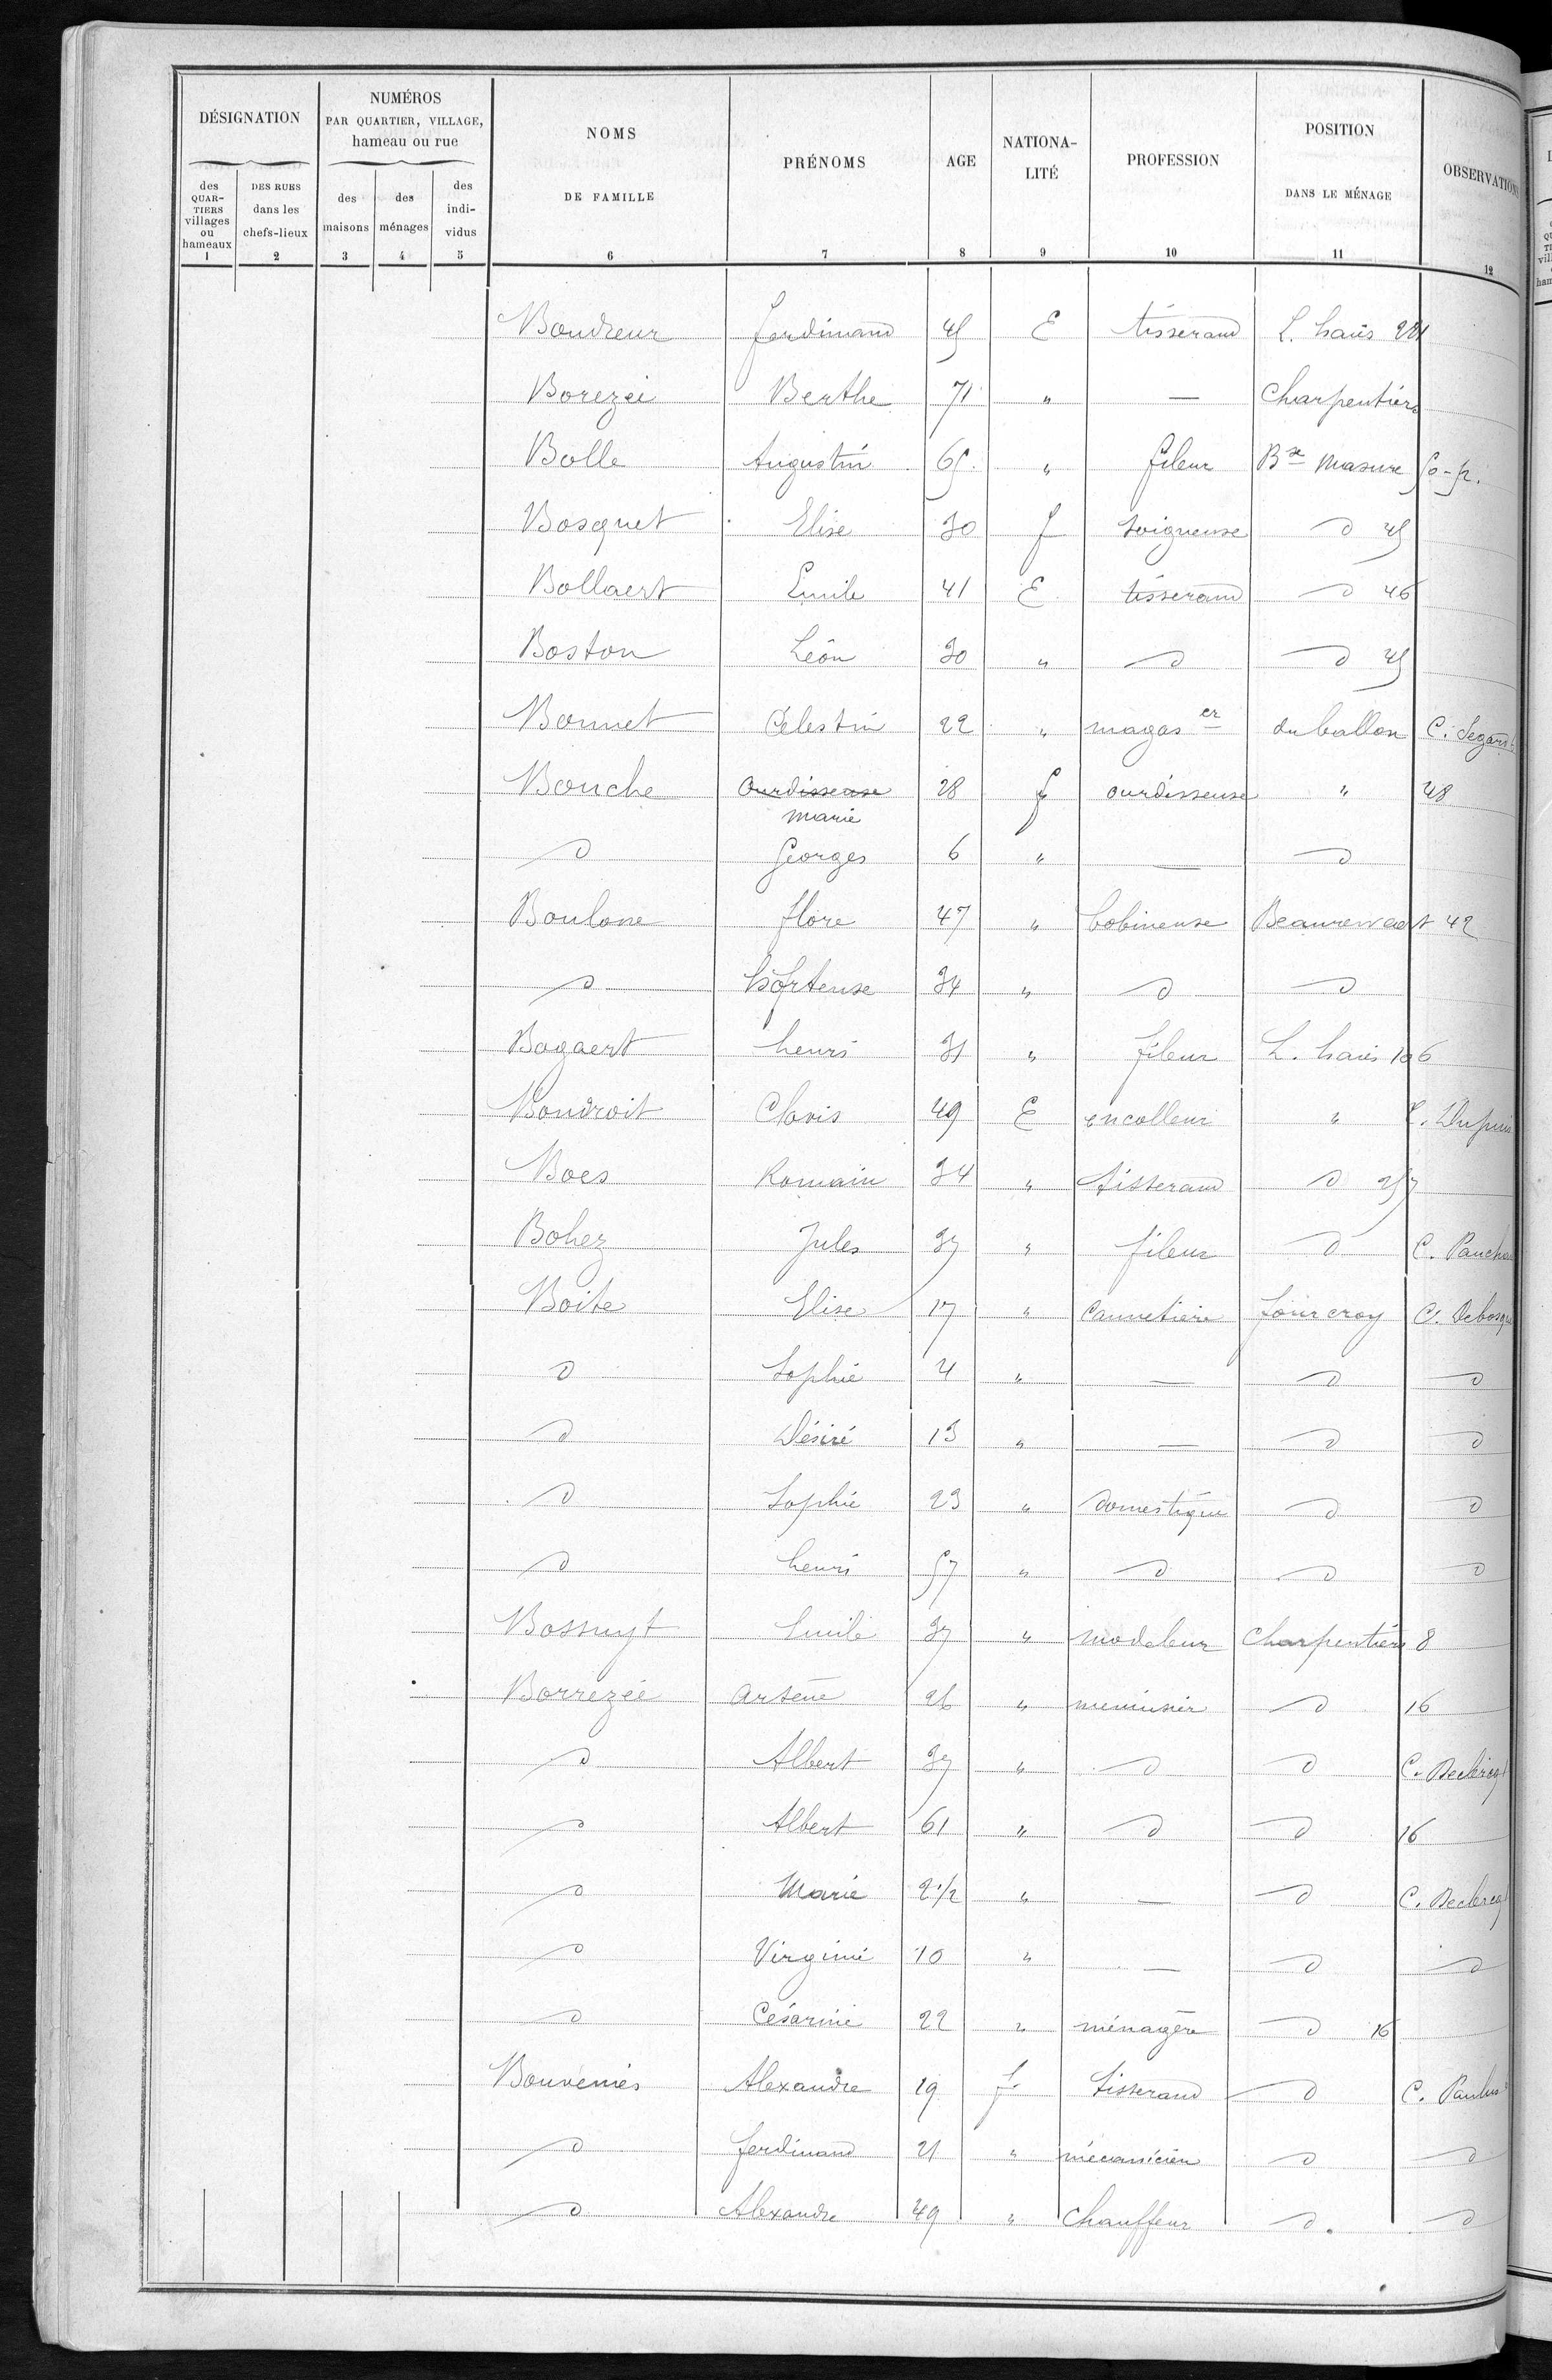 DÉSIGNATION | NUMÉROS PAR QUARTIER, VILLAGE, hameau ou rue | NOMS DE FAMILLE | PRÉNOMS | AGE | NATIONA-LITÉ | PROFESSION | POSITION DANS LE MÉNAGE | OBSERVATIONS
des QUAR-TIERS villages ou hameaux | DES RUES dans les chefs-lieux | des maisons | des ménages | des indi-vidus
1 2 3 4 5 6 7 8 9 10 11 12
Boudreur ferdinand 45 E tisserand L. haies 221
Borezée Berthe 71 " — Charpentiers
Bolle Augustin 65 " fileur Bse Masure
Bosquet Elise 30 f soigneuse d 45
Bollaert Emile 41 E tisserand d 46
Boston Léon 30 " d d 45
Bonnet Célestin 22 " magaser du ballon C. Segard
Bouche Ourdisseuse marie 28 f ourdisseuse " 48
d Georges 6 " — d
Boulone flore 47 " bobineuse Beaurewaert 42
d Hortense 34 " d d
Bogaert henri 31 " fileur L. haies 106
Boudroit Clovis 49 E encolleur " C. Dupuis
Boes Romain 34 " tisserand d 257
Bohez Jules 37 " fileur d
Boite Elise 17 " Cannetière fourcroy
d Sophie 4 " — d d
d Désiré 13 " — d d
d Sophie 23 " domestique d d
d henri 57 " d d d
Bossuyt Emile 37 " modeleur Charpentiers 8
Borrezée Arsène 26 " menuisier d 16
d Albert 37 " d d C. Declercq
d Albert 61 " d d 16
d Marie 2 1/2 " — d C. Declercq
d Virginie 10 " — d d
d Césarine 22 " ménagère d 16
Bouveniés Alexandre 19 f tisserand d C. Paulus
d ferdinand 21 " mécanicien d d
d Alexandre 49 " Chauffeur d. d